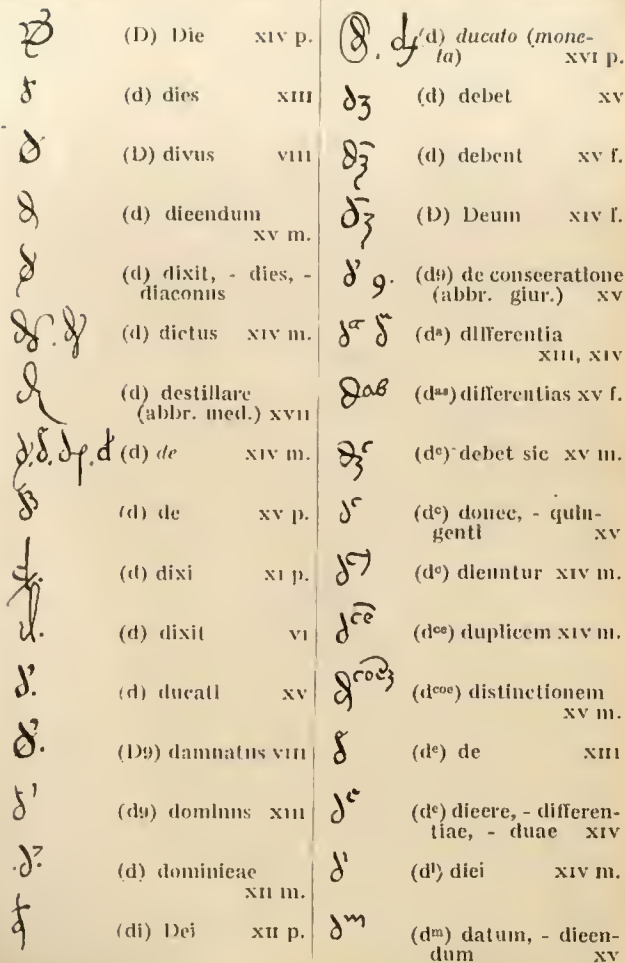 (D) Die xiv p.
(d) dies xiii
(D) divus viii
(d) dicendum
xv m.
(d) dixit, - dies, -
diaconus
(d) dictus xiv m.
(d) destillare
(abbr. med.) xvii
(d) de xiv m.
(d) de xv p.
(d) dixi xi p.
(d) dixit vi
(d) ducati xv
(D9) damnatus viii
(d9) dominus xiii
(d) dominicae
xii m.
(di) Dei xii p.
(d) ducato (mone-
ta) xvi p.
(d) debet xv
(d) debent xv f.
(D) Deum xiv f.
(d9) de consecratione
(abbr. giur.) xv
(dª) differentia
xiii, xiv
(dªˢ) differentias xv f.
(dᶜ) debet sic xv m.
(dᶜ) donec, - quin-
genti xv
(dᶜ) dicuntur xiv m.
(dᶜᵉ) duplicem xiv m.
(dᶜᵒᵉ) distinctionem
xv m.
(dᵉ) de xiii
(dᵉ) dicere, - differen-
tiae, - duae xiv
(dⁱ) diei xiv m.
(dᵐ) datum, - dicen-
dum xv